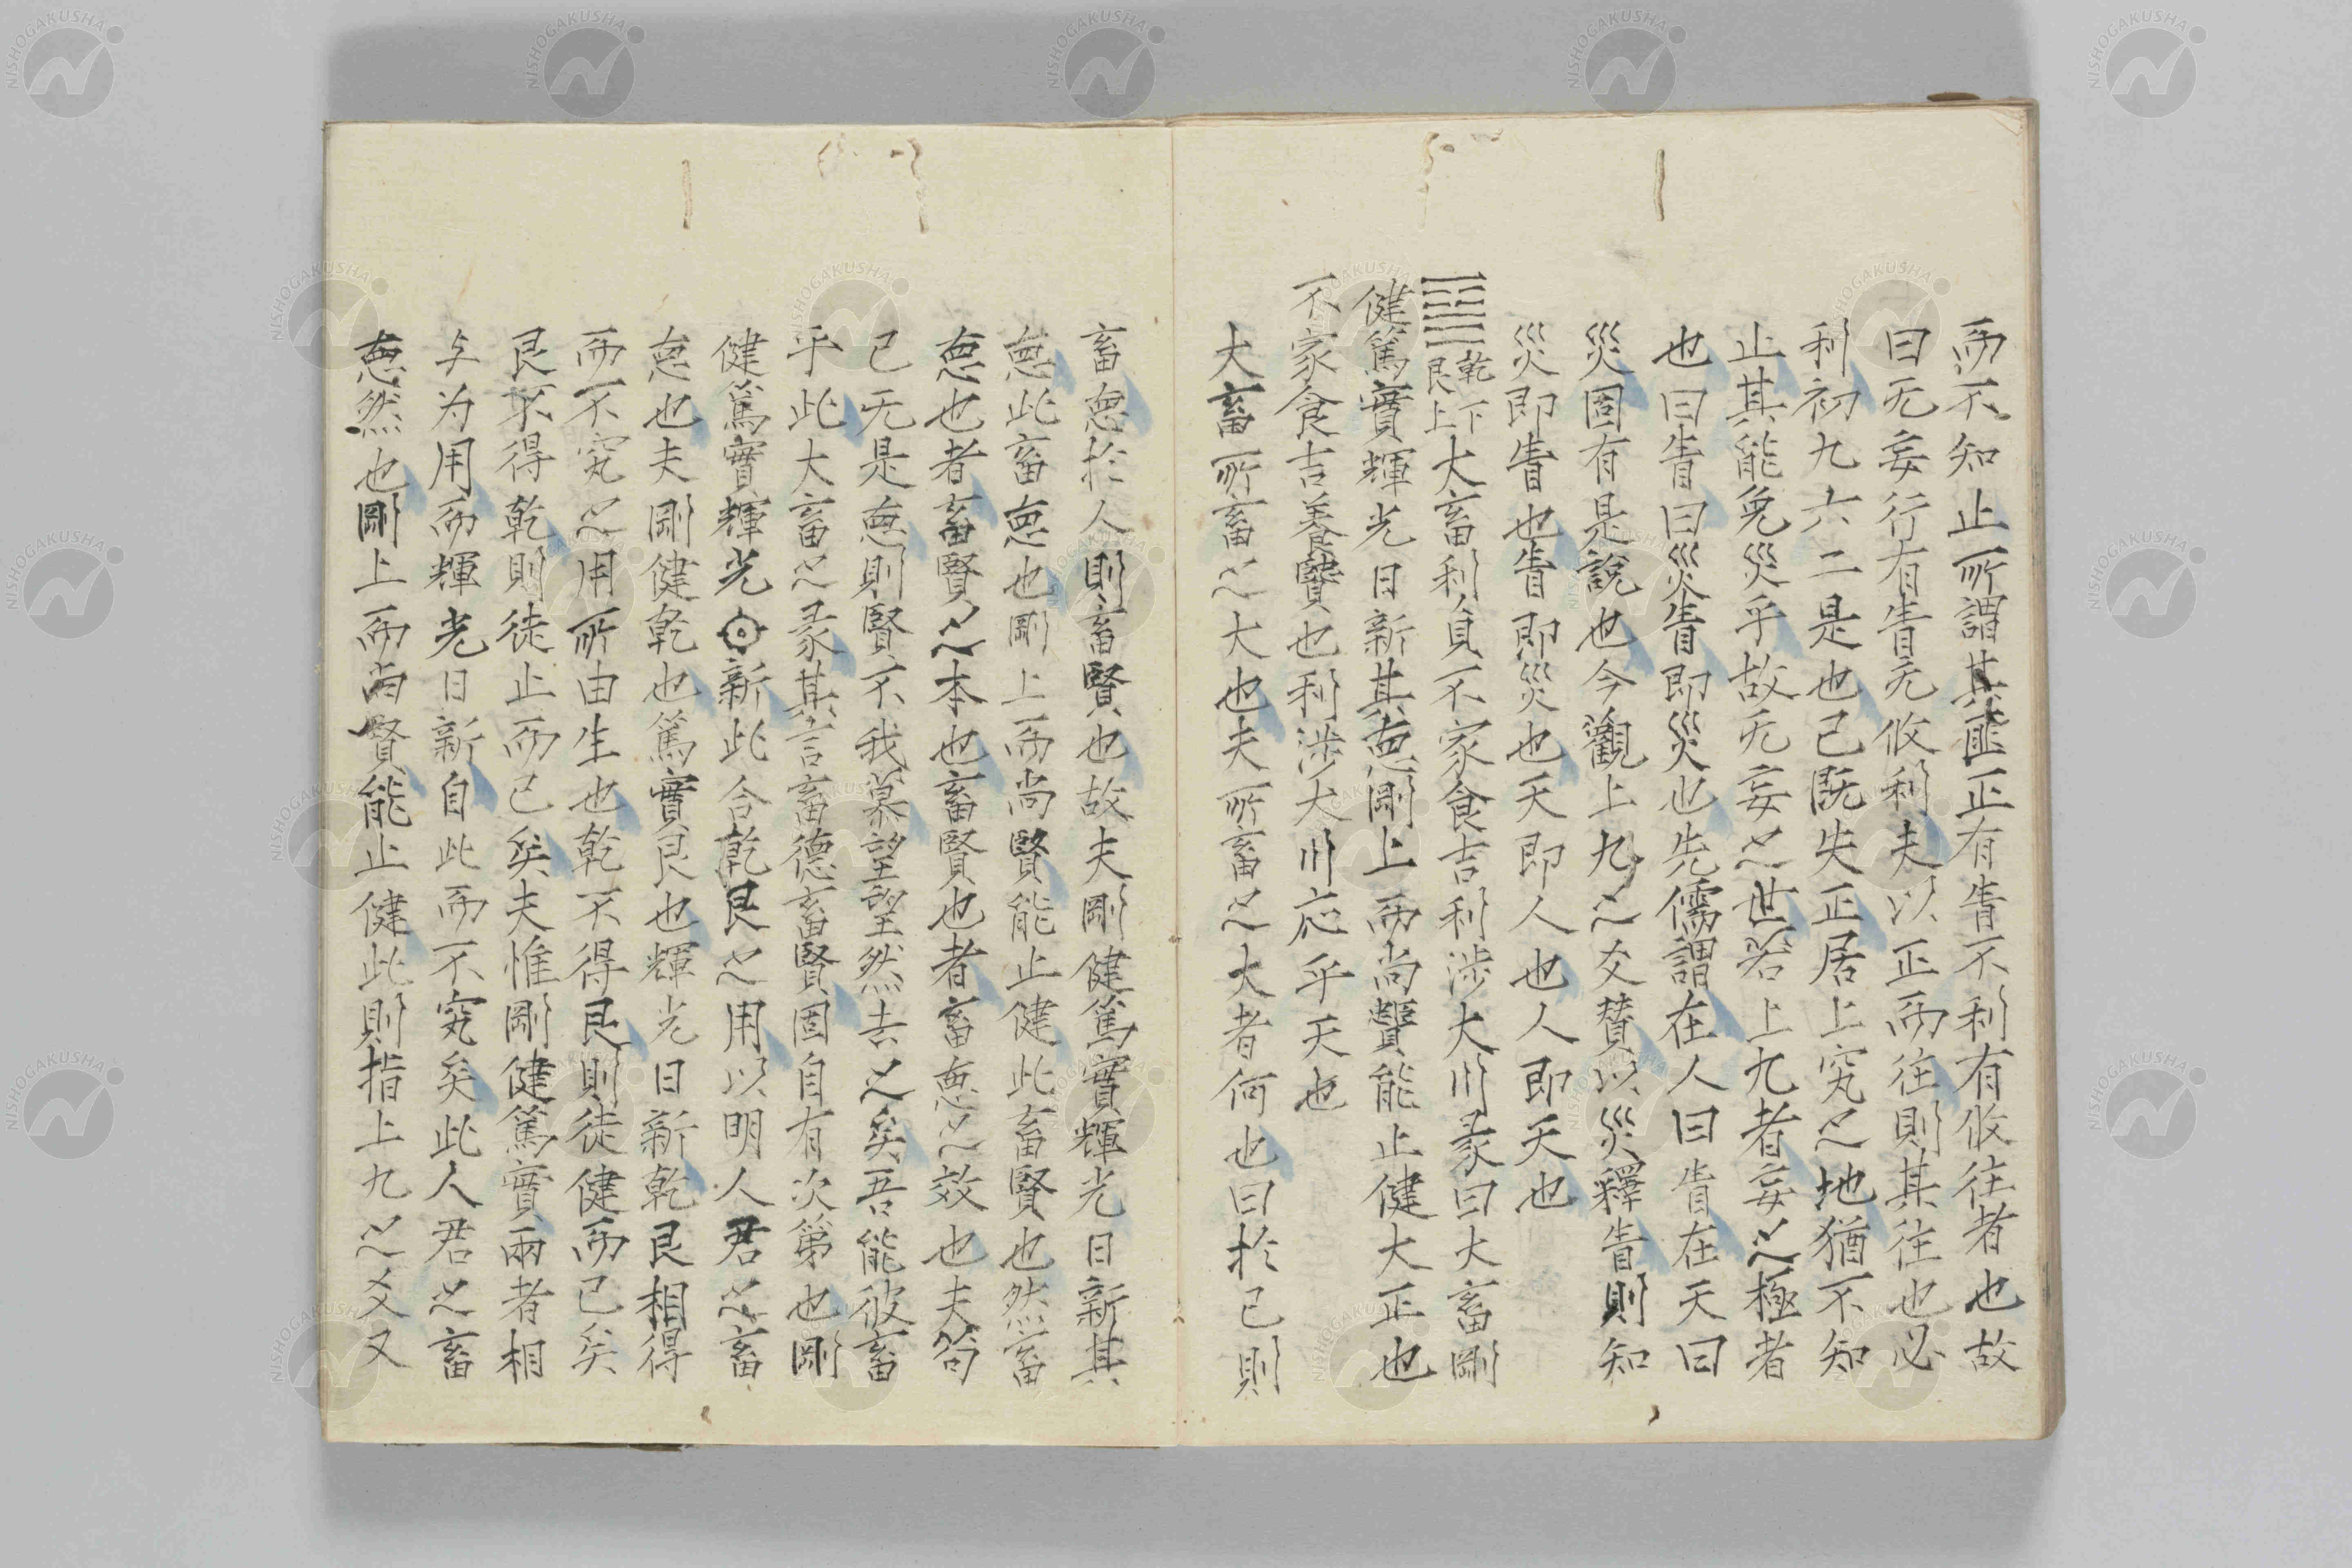 而不知止所謂其匪正有眚不利有攸往者也故
曰无妄行有眚无攸利夫以正而往則其往也必
利初九六二是也已既失正居上究之地猶不知
止其能免災乎故无妄之世若上九者妄之極者
也曰眚曰災眚即災也先儒謂在人曰眚在天曰
災固有是說也今觀上九之爻贊以災釋眚則知
災即眚也眚即災也天即人也人即天也
䷙乾下艮上大畜利貞不家食吉利涉大川彖曰大畜剛
健篤實輝光日新其悳剛上而尚賢能止健大正也
不家食吉養賢也利涉大川应乎天也
大畜所畜之大也夫所畜之大者何也曰於己則
畜悳於人則畜賢也故夫剛健篤實輝光日新其
悳此畜悳也剛上而尚賢能止健此畜賢也然畜
悳也者畜賢之本也畜賢也者畜悳之效也夫苟
己无是悳則賢不我慕望望然去之矣吾能彼畜
乎此大畜之彖其言畜德畜賢固自有次第也剛
健篤實輝光日新此合乾艮之用以明人君之畜
悳也夫剛健乾也篤實艮也輝光日新乾艮相得
而不究之用所由生也乾不得艮則徒健而已矣
艮不得乾則徒止而已矣夫惟剛健篤實兩者相
与为用而輝光日新自此而不究矣此人君之畜
悳然也剛上而尚賢能止健此則指上九之爻又